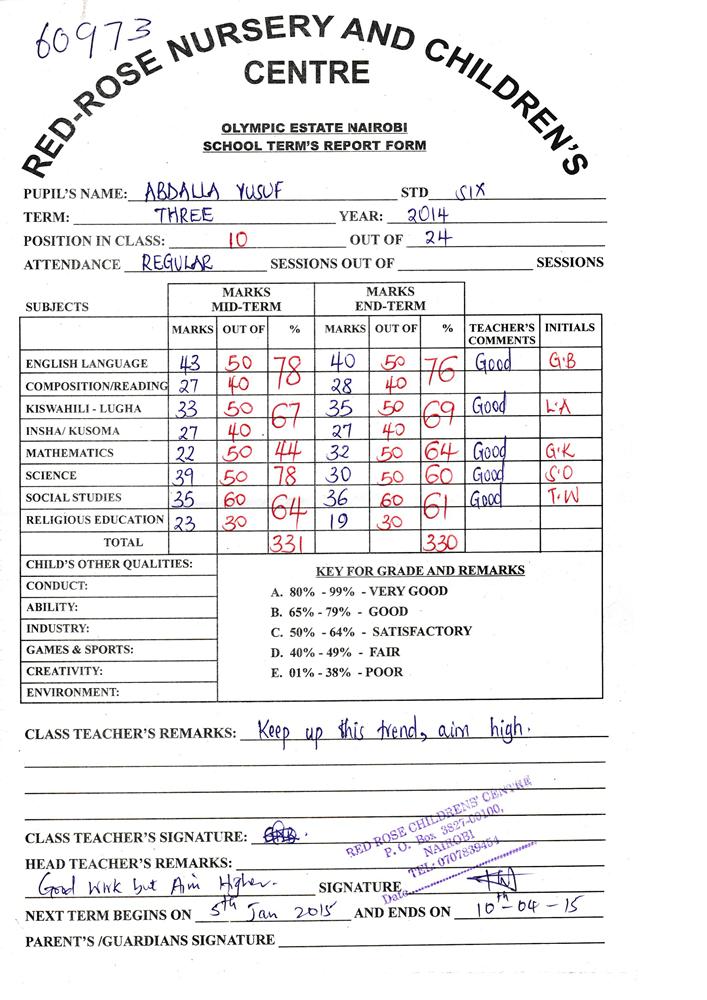 60973
RED-ROSE NURSERY AND CHILDREN'S
CENTRE
OLYMPIC ESTATE NAIROBI
SCHOOL TERM'S REPORT FORM
PUPIL'S NAME: ABDALLA YUSUF STD SIX
TERM: THREE YEAR: 2014
POSITION IN CLASS: 10 OUT OF 24
ATTENDANCE REGULAR SESSIONS OUT OF SESSIONS
SUBJECTS MARKS MID-TERM MARKS END-TERM
MARKS OUT OF % MARKS OUT OF % TEACHER'S COMMENTS INITIALS
ENGLISH LANGUAGE 43 50 78 40 50 76 Good G.B
COMPOSITION/READING 27 40 28 40
KISWAHILI - LUGHA 33 50 67 35 50 69 Good L.A
INSHA/ KUSOMA 27 40 27 40
MATHEMATICS 22 50 44 32 50 64 Good G.K
SCIENCE 39 50 78 30 50 60 Good S.O
SOCIAL STUDIES 35 60 64 36 60 61 Good T.W
RELIGIOUS EDUCATION 23 30 19 30
TOTAL 331 330
CHILD'S OTHER QUALITIES:
CONDUCT:
ABILITY:
INDUSTRY:
GAMES & SPORTS:
CREATIVITY:
ENVIRONMENT:
KEY FOR GRADE AND REMARKS
A. 80% - 99% - VERY GOOD
B. 65% - 79% - GOOD
C. 50% - 64% - SATISFACTORY
D. 40% - 49% - FAIR
E. 01% - 38% - POOR
CLASS TEACHER'S REMARKS: Keep up this trend, aim high.
CLASS TEACHER'S SIGNATURE:
RED ROSE CHILDRENS' CENTRE
P. O. Box 3827-00100,
NAIROBI
TEL: 0707839454
Date
HEAD TEACHER'S REMARKS:
Good work but Aim Higher. SIGNATURE
NEXT TERM BEGINS ON 5th Jan 2015 AND ENDS ON 10th-04-15
PARENT'S /GUARDIANS SIGNATURE